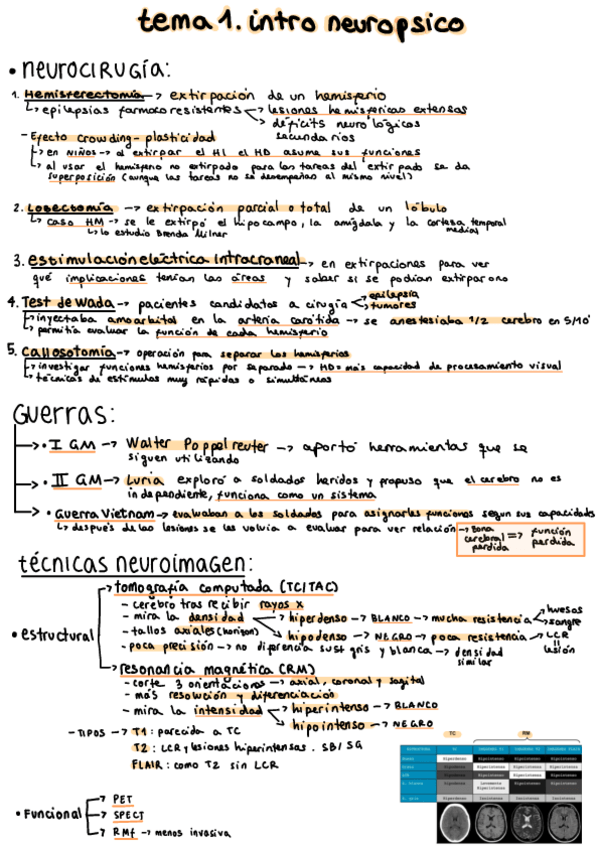 tema 1. intro neuropsico
• neurocirugía:
1. Hemisferectomía → extirpación de un hemisferio
↳ epilepsias farmacoresistentes → lesiones hemisféricas extensas
→ déficits neurológicos secundarios
- Efecto crowding - plasticidad
↳ en NIÑOS → al extirpar el HI el HD asume sus funciones
↳ al usar el hemisferio no extirpado para las tareas del extirpado se da
superposición (aunque las tareas no se desempeñan al mismo nivel)
2. Lobectomía → extirpación parcial o total de un lóbulo
↳ caso HM → se le extirpó el hipocampo, la amígdala y la corteza temporal medial
↳ lo estudio Brenda Milner
3. estimulación eléctrica intracraneal → en extirpaciones para ver
qué implicaciones tenían las áreas y saber si se podían extirpar o no
4. Test de Wada → pacientes candidatos a cirugía → epilepsia
→ tumores
↳ inyectaba amobarbital en la arteria carótida → se anestesiaba 1/2 cerebro en 5/10'
↳ permitía evaluar la función de cada hemisferio
5. Callosotomía → operación para separar los hemisferios
↳ investigar funciones hemisferios por separado → HD = más capacidad de procesamiento visual
↳ técnicas de estímulos muy rápidas o simultáneas
Guerras:
→ • I GM → Walter Poppelreuter → aportó herramientas que se
siguen utilizando
→ • II GM → Luria exploró a soldados heridos y propuso que el cerebro no es
independiente, funciona como un sistema
→ • Guerra Vietnam → evaluaban a los soldados para asignarles funciones según sus capacidades
↳ después de las lesiones se les volvía a evaluar para ver relación → zona cerebral perdida => función perdida
técnicas neuroimagen:
• estructural
→ tomografía computada (TC/TAC)
- cerebro tras recibir rayos x
- mira la densidad → hiperdenso → BLANCO → mucha resistencia → huesos
→ sangre
- tallos axiales (horizon) → hipodenso → NEGRO → poca resistencia → LCR
= lesión
- poca precisión → no diferencia sust gris y blanca → densidad similar
→ resonancia magnética (RM)
- corte 3 orientaciones → axial, coronal y sagital
- más resolución y diferenciación
- mira la intensidad → hiperintenso → BLANCO
→ hipointenso → NEGRO
- TIPOS → T1: parecida a TC
T2: LCR y lesiones hiperintensas. SB/SG
FLAIR: como T2 sin LCR
TC RM
• Funcional
→ PET
→ SPECT
→ RMf → menos invasiva